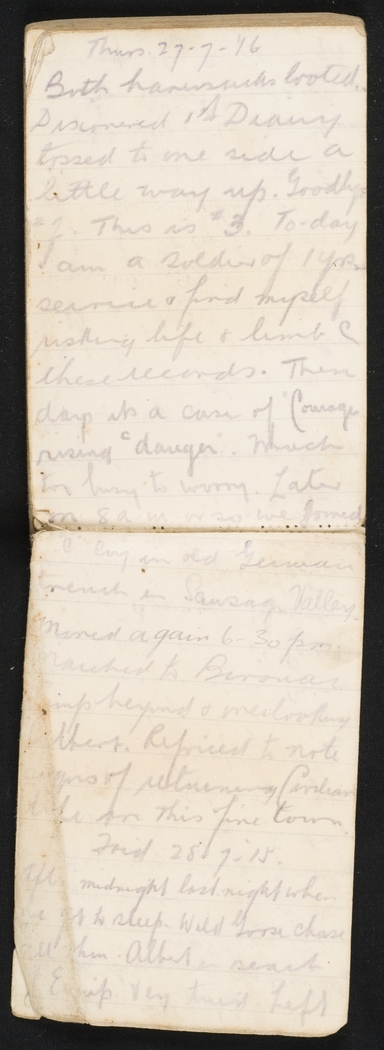 Thurs. 27-7-'16
Both haversacks looted.
Discovered 1st Diary
tossed to one side a
little way up. Goodbye
# 2. This is # 3. To-day
I am a soldier of 1 yrs
service & find myself
risking life & limb C
these records. These
days its a case of "Courage
rising c danger". Much
too busy to worry. Later
on 8 a.m. or so we joined
"C" Coy in old German
trench in Sausage Valley.
Moved again 6-30 pm.
Marched to Bivouac
camp beyond & overlooking
Albert. Rejoiced to note
signs of returning Civilian
life in this fine town.
Frid 28-7-15.
Aft midnight last night when
we got to sleep. Wild Goose chase
Albert in search
of Equip. Very tired. Left